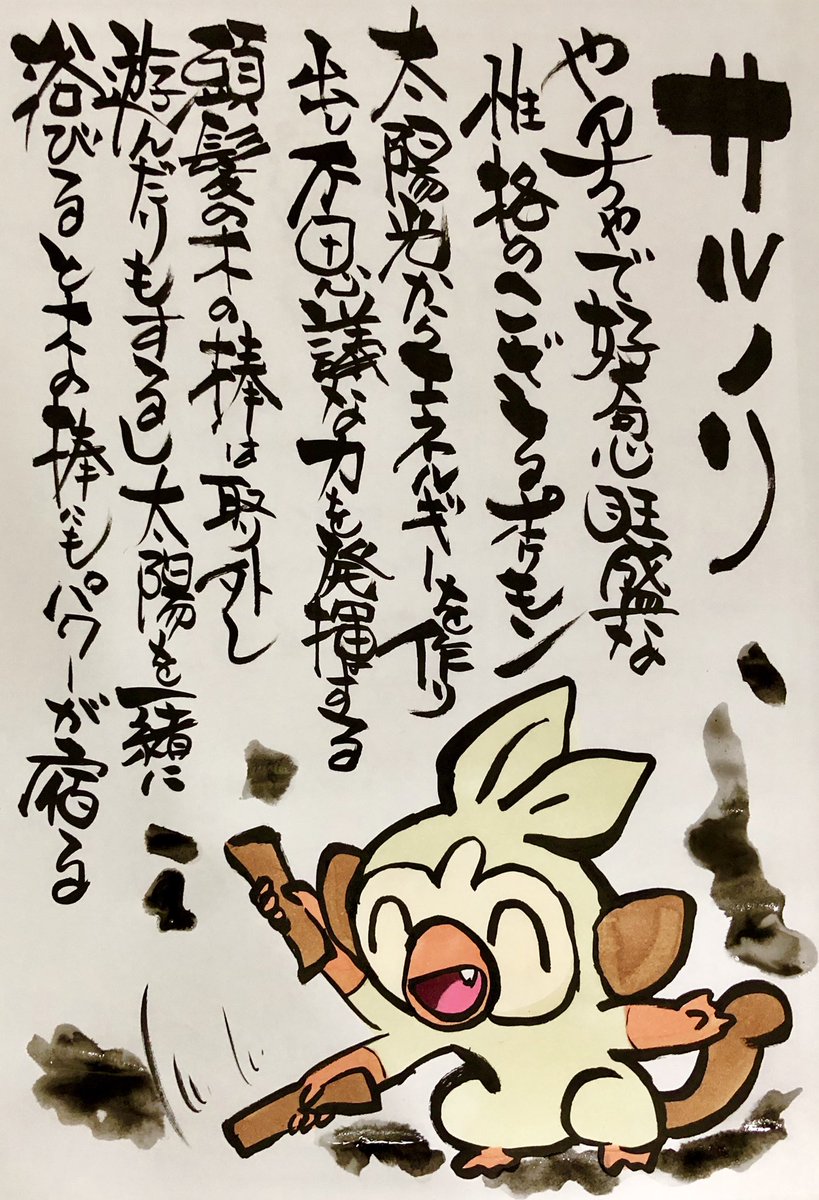 サルノリ
やんちゃで好奇心旺盛な
性格のこざるポケモン
太陽光からエネルギーを作り
出し不思議な力を発揮する
頭髪の木の棒は取り外し
遊んだりもするし太陽を一緒に
浴びると木の棒にもパワーが宿る